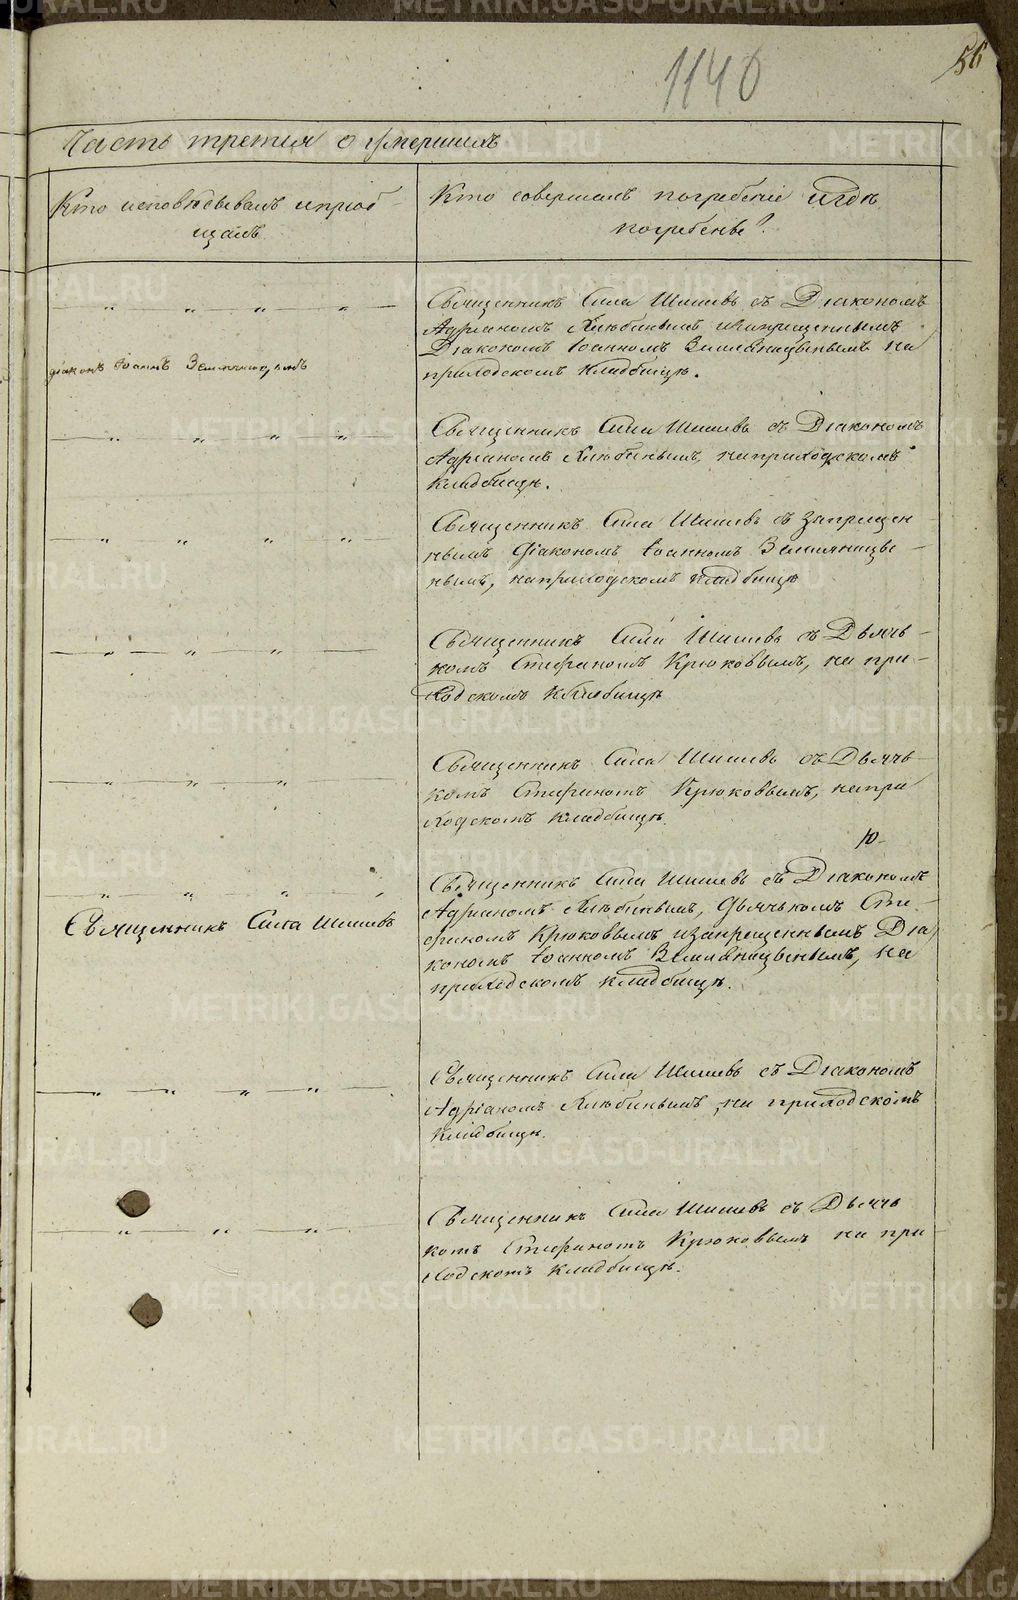 1140
56
Часть третия о умершихъ
Кто исповѣдывалъ и пріоб-
щалъ
Кто совершалъ погребеніе и гдѣ
погребены?
Священникъ Сила Шишевъ съ Діакономъ
Адріаномъ Хлюбинымъ и запрещеннымъ
Діакономъ Іоанномъ Земляницынымъ на
приходскомъ кладбищѣ.
діаконъ Іоаннъ Земляницынъ
Священникъ Сила Шишевъ съ Діакономъ
Адріаномъ Хлюбинымъ, на приходскомъ
кладбищѣ.
Священникъ Сила Шишевъ съ запрещен
нымъ діакономъ Іоанномъ Земляницы-
нымъ, на приходскомъ кладбищѣ
Священникъ Сила Шишевъ съ Дьячь-
комъ Стефаномъ Крюковымъ, на при-
ходскомъ кладбищѣ
Священникъ Сила Шишевъ съ Дьячь-
комъ Стефаномъ Крюковымъ, на при
ходскомъ кладбищѣ.
Ю-
Священникъ Сила Шишевъ съ Діакономъ
Адріаномъ Хлюбинымъ, дьячькомъ Сте-
фаномъ Крюковымъ и запрещеннымъ Діа
кономъ Іоанномъ Земляницынымъ, на
приходскомъ кладбищѣ.
Священникъ Сила Шишевъ
Священникъ Сила Шишевъ съ Діакономъ
Адріаномъ Хлюбинымъ, на приходскомъ
кладбищѣ.
Священникъ Сила Шишевъ съ Дьячь
комъ Стефаномъ Крюковымъ на при
ходскомъ кладбищѣ.
METRIKI.GASO-URAL.RU